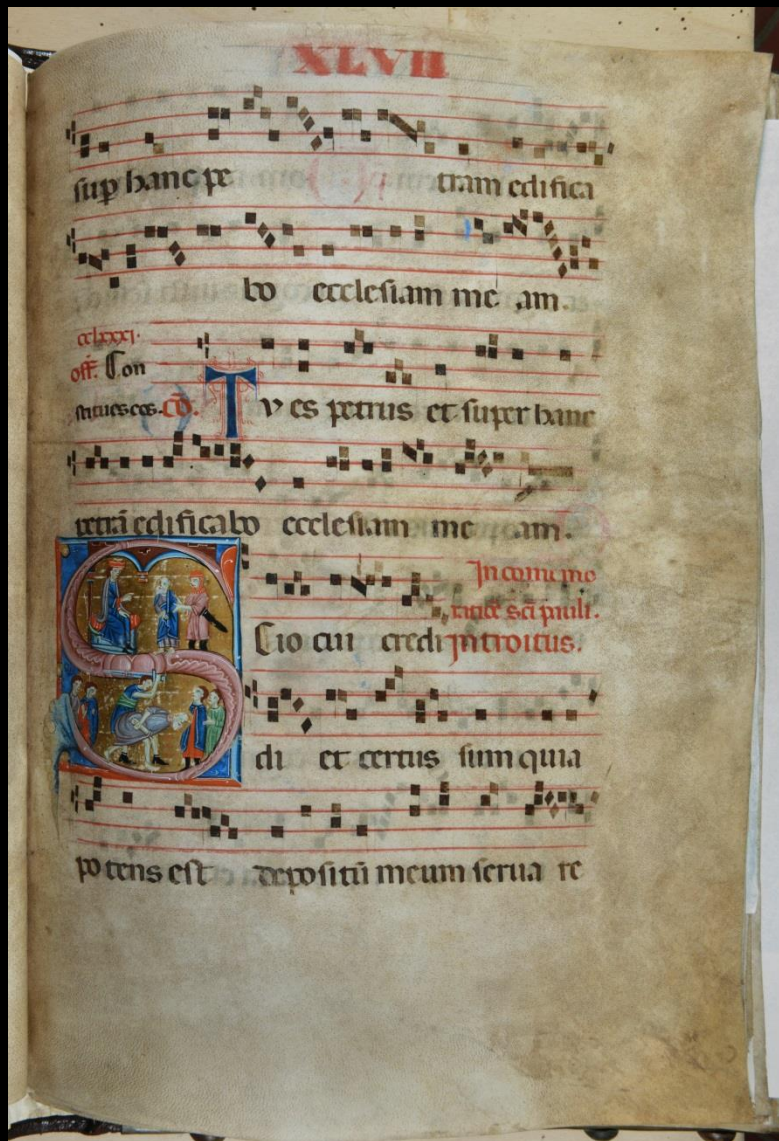 XLVII
sup hanc pe tram edifica
bo ecclesiam me am.
cclxxxi.
off. Con
stitues eos. co. Tv es petrus et super hanc
petrā edificabo ecclesiam me am.
In comemo
ratiōe sci pauli.
Scio cui credi introitus.
di et certus sum quia
potens est depositū meum serua re